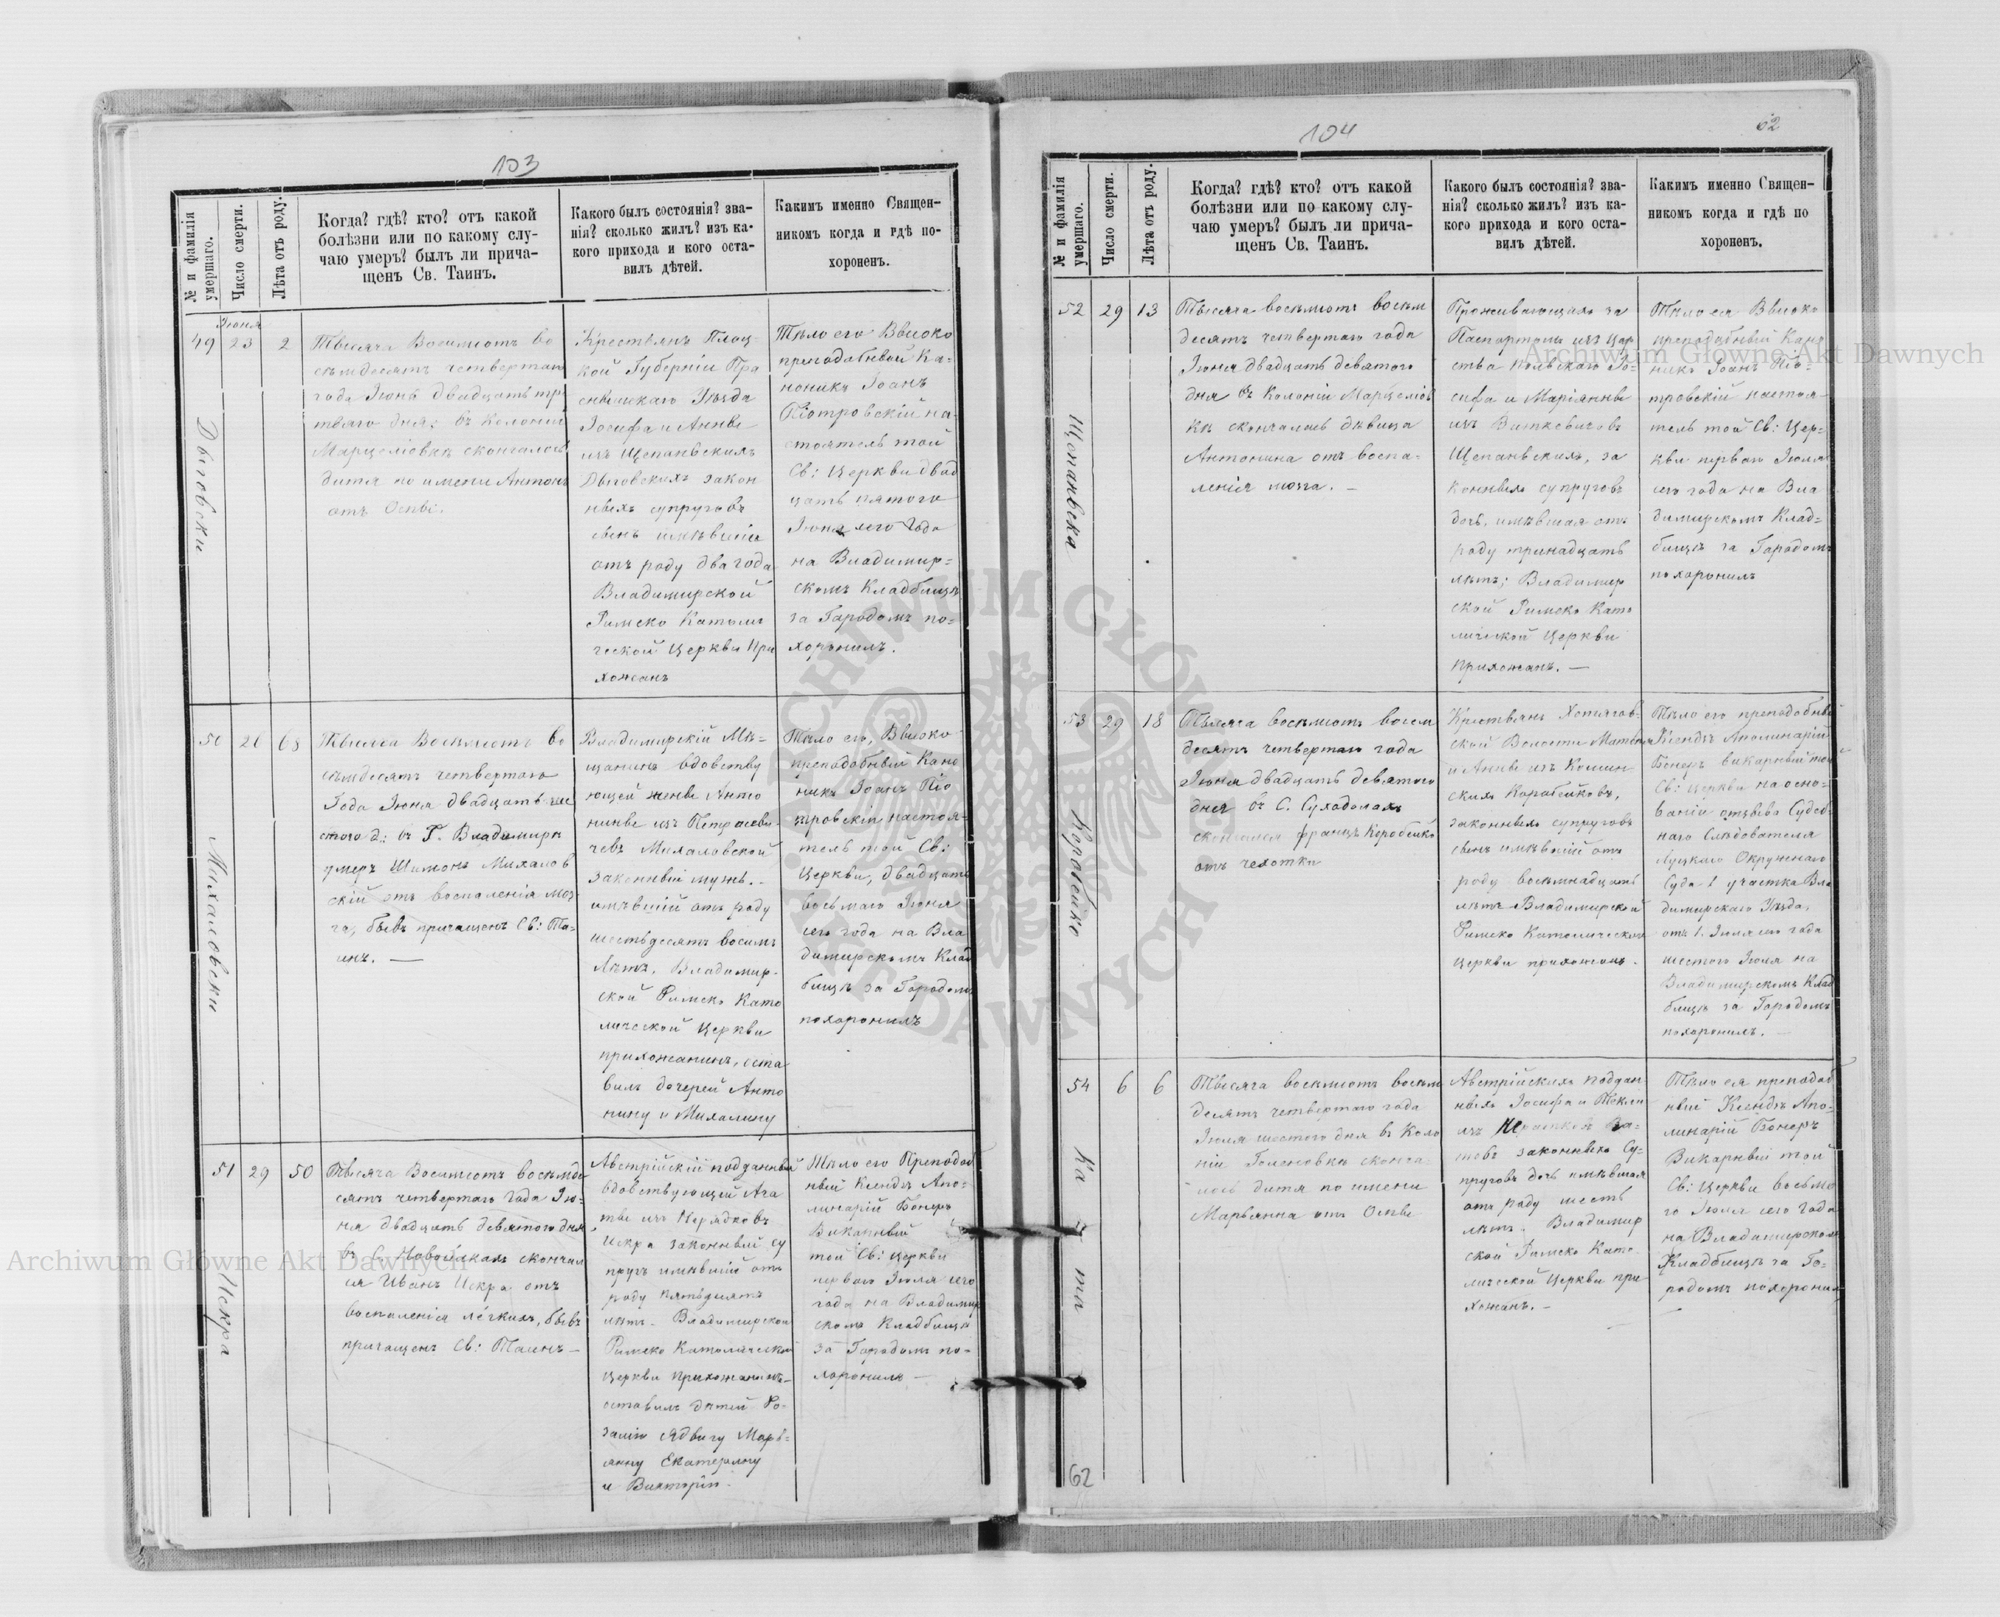 103
№ и фамилія умершаго.
Число смерти.
Лѣта отъ роду.
Когда? гдѣ? кто? отъ какой
болѣзни или по какому слу-
чаю умеръ? былъ ли прича-
щенъ Св. Таинъ.
Какого былъ состоянія? зва-
нія? сколько жилъ? изъ ка-
кого прихода и кого оста-
вилъ дѣтей.
Какимъ именно Священ-
никомъ когда и гдѣ по-
хороненъ.
49
Дыговски
Іюня
23
2
Тысяча Восимсотъ во
сѣмдесятъ четвертаго
года Іюнь двадцать тре
тяго дня; въ Колоніи
Марцеліовкѣ скончалось
дитя по имени Антонъ
отъ Оспы.
Крестьянъ Плоц-
кой Губерніи Пра
снышскаго Уѣзда
Іосифа и Анны
изъ Щепаньскихъ
Дыговскихъ закон
ныхъ супруговъ
сынъ имѣвшій
отъ роду два года
Владимирской
Римско Католи
ческой Церкви При
хожанъ
Тѣло его Высоко
преподобный Ка-
ноникъ Іоанъ
Піотровскій на-
стоятель той
Св: Церкви двад
цать пятого
Іюня сего года
на Владимир-
скомъ Кладбищѣ
за Городомъ по-
хоронилъ.
50
Михаловски
26
68
Тысяча Восемьсотъ во
сѣмдесятъ четвертаго
Года Іюня двадцать ше
стого д: въ Г. Владимирѣ
умеръ Шимонъ Михалов
скій отъ воспаленія моз
га, бывъ причащенъ Св: Та-
инъ. —
Владимирскій Мѣ-
щанинъ вдовству
ющей жены Анто
нины изъ Петрасеви
чевъ Михаловской
законный мужъ.-
имѣвшій отъ роду
шестьдесятъ восимъ
лѣтъ, Владимир-
ской Римско Като
лической Церкви
прихожанинъ, оста
вилъ дочерей Анто
нину и Михалину
Тѣло его, Высоко
преподобный Кано
никъ Іоанъ Піо
тровскій настоя-
тель той Св:
Церкви, двадцать
восьмаго Іюня
сего года на Вла
димирскомъ Клад
бищѣ за Городомъ
похоронилъ
51
Искра
29
50
Тысяча Восимсотъ восьмде
сятъ четвертаго года Ію-
ня двадцать девятого дня
въ С. скончал
ся Иванъ Искра отъ
воспаленія лёгкихъ, бывъ
причащенъ Св: Таинъ —
Австрійскій подданный
вдовствующей Ага
ты изъ
Искра законный су
пругъ имѣвшій отъ
роду пятьдесятъ
лѣтъ. Владимирской
Римско Католической
Церкви прихожанинъ-
оставилъ дѣтей Ро-
залію Ядвигу Марь-
янну Екатерину
и
Тѣло его Преподоб
ный Ксендзъ Апо-
линарій Бонеръ
Викарный
той Св: Церкви
первого Іюля сего
года на Владимир
скомъ Кладбищѣ
за Городомъ по-
хоронилъ —
104
62
№ и фамилія умершаго.
Число смерти.
Лѣта отъ роду.
Когда? гдѣ? кто? отъ какой
болѣзни или по какому слу-
чаю умеръ? былъ ли прича-
щенъ Св. Таинъ.
Какого былъ состоянія? зва-
нія? сколько жилъ? изъ ка-
кого прихода и кого оста-
вилъ дѣтей.
Какимъ именно Священ-
никомъ когда и гдѣ по
хороненъ.
52
Щепаньска
29
13
Тысяча восемьсотъ восьм
десятъ четвертаго года
Іюня двадцать девятого
дня въ Колоніи Марцеліов
кѣ скончалась дѣвица
Антонина отъ воспа-
ленія мозга. —
Проживающихъ за
Паспортомъ изъ Цар
ства Польскаго Іо-
сифа и Маріянны
изъ Витковичовъ
Щепаньскихъ, за
конныхъ супруговъ
дочь, имѣвшая отъ
роду тринадцать
лѣтъ; Владимир
ской Римско Като
лической Церкви
Прихожанъ. —
Тѣло ея Высоко
преподобный Кано
никъ Іоанъ Піо-
тровскій настоя-
тель той Св: Цер-
кви первого Іюля
сего года на Вла
димирскомъ Клад-
бищѣ за Городомъ
похоронилъ
53
Коробейко
29
18
Тысяча восемьсотъ восем
десятъ четвертаго года
Іюня двадцать девятого
дня въ С. Суходолахъ
скончался Францъ Коробейко
отъ чехотки
Крестьянъ Хотячов-
ской Волости
и Анны изъ
скихъ Коробейковъ,
законныхъ супруговъ
сынъ имѣвшій отъ
роду восемьнадцать
лѣтъ Владимирской
Римско Католической
Церкви прихожанъ.
Тѣло его преподобный
Ксендзъ Аполинарій
Бонеръ викарный той
Св: Церкви на осно-
ваніи отзыва Судеб
наго Слѣдователя
Луцкаго Окружнаго
Суда 1 участка Вла
димирскаго Уѣзда.
отъ 1. Іюля сего года
шестого Іюля на
Владимирскомъ Клад
бищѣ за Городомъ
похоронилъ. —
54
6
6
Тысяча восемьсотъ восьм
десятъ четвертаго года
Іюля шестого дня въ Коло
ніи скончa-
лось дитя по имени
Марьянна отъ Оспы
Австрійскихъ поддан
ныхъ Іосифа и Текли
изъ
законныхъ Су-
пруговъ дочь имѣвшая
отъ роду шесть
лѣтъ. Владимир
ской Римско Като-
лической Церкви при
хожанъ. —
Тѣло ея преподоб
ный Ксендзъ Апо-
линарій Бонеръ
Викарный той
Св: Церкви восьмо
го Іюля сего года
на Владимирскомъ
Кладбищѣ за Го-
родомъ похоронилъ
62
Archiwum Główne Akt Dawnych
Archiwum Główne Akt Dawnych
ARCHIWUM GŁÓWNE AKT DAWNYCH